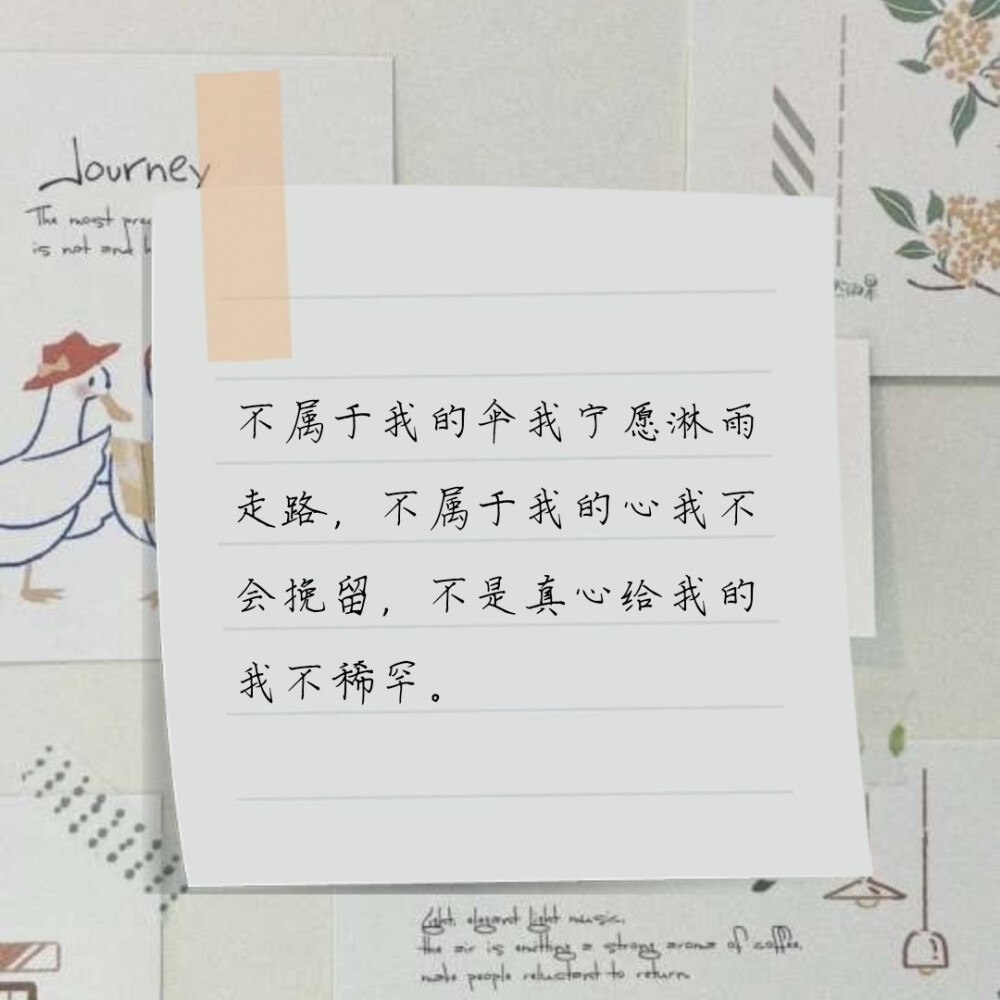 Journey
The most
is not and
不属于我的伞我宁愿淋雨
走路，不属于我的心我不
会挽留，不是真心给我的
我不稀罕。
Light, elegant light music,
the air is emitting a strong aroma of coffee,
make people reluctant to return